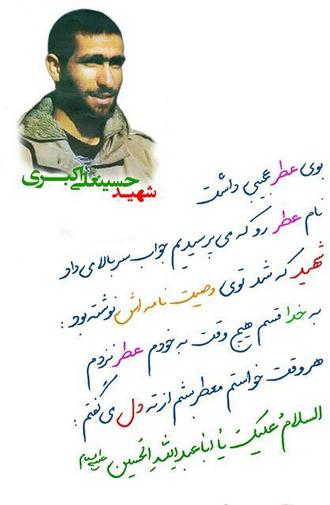 شهید حسینعلی اکبری
بوی عطر عجیبی داشت
نام عطر رو که می پرسیدیم جواب سر بالا می داد
شهید که شد توی وصیت نامه اش نوشته بود :
به خدا قسم هیچ وقت به خودم عطر نزدم
هر وقت خواستم معطر بشم از ته دل می گفتم :
السلام علیک یا اباعبدالله الحسین علیه السلام